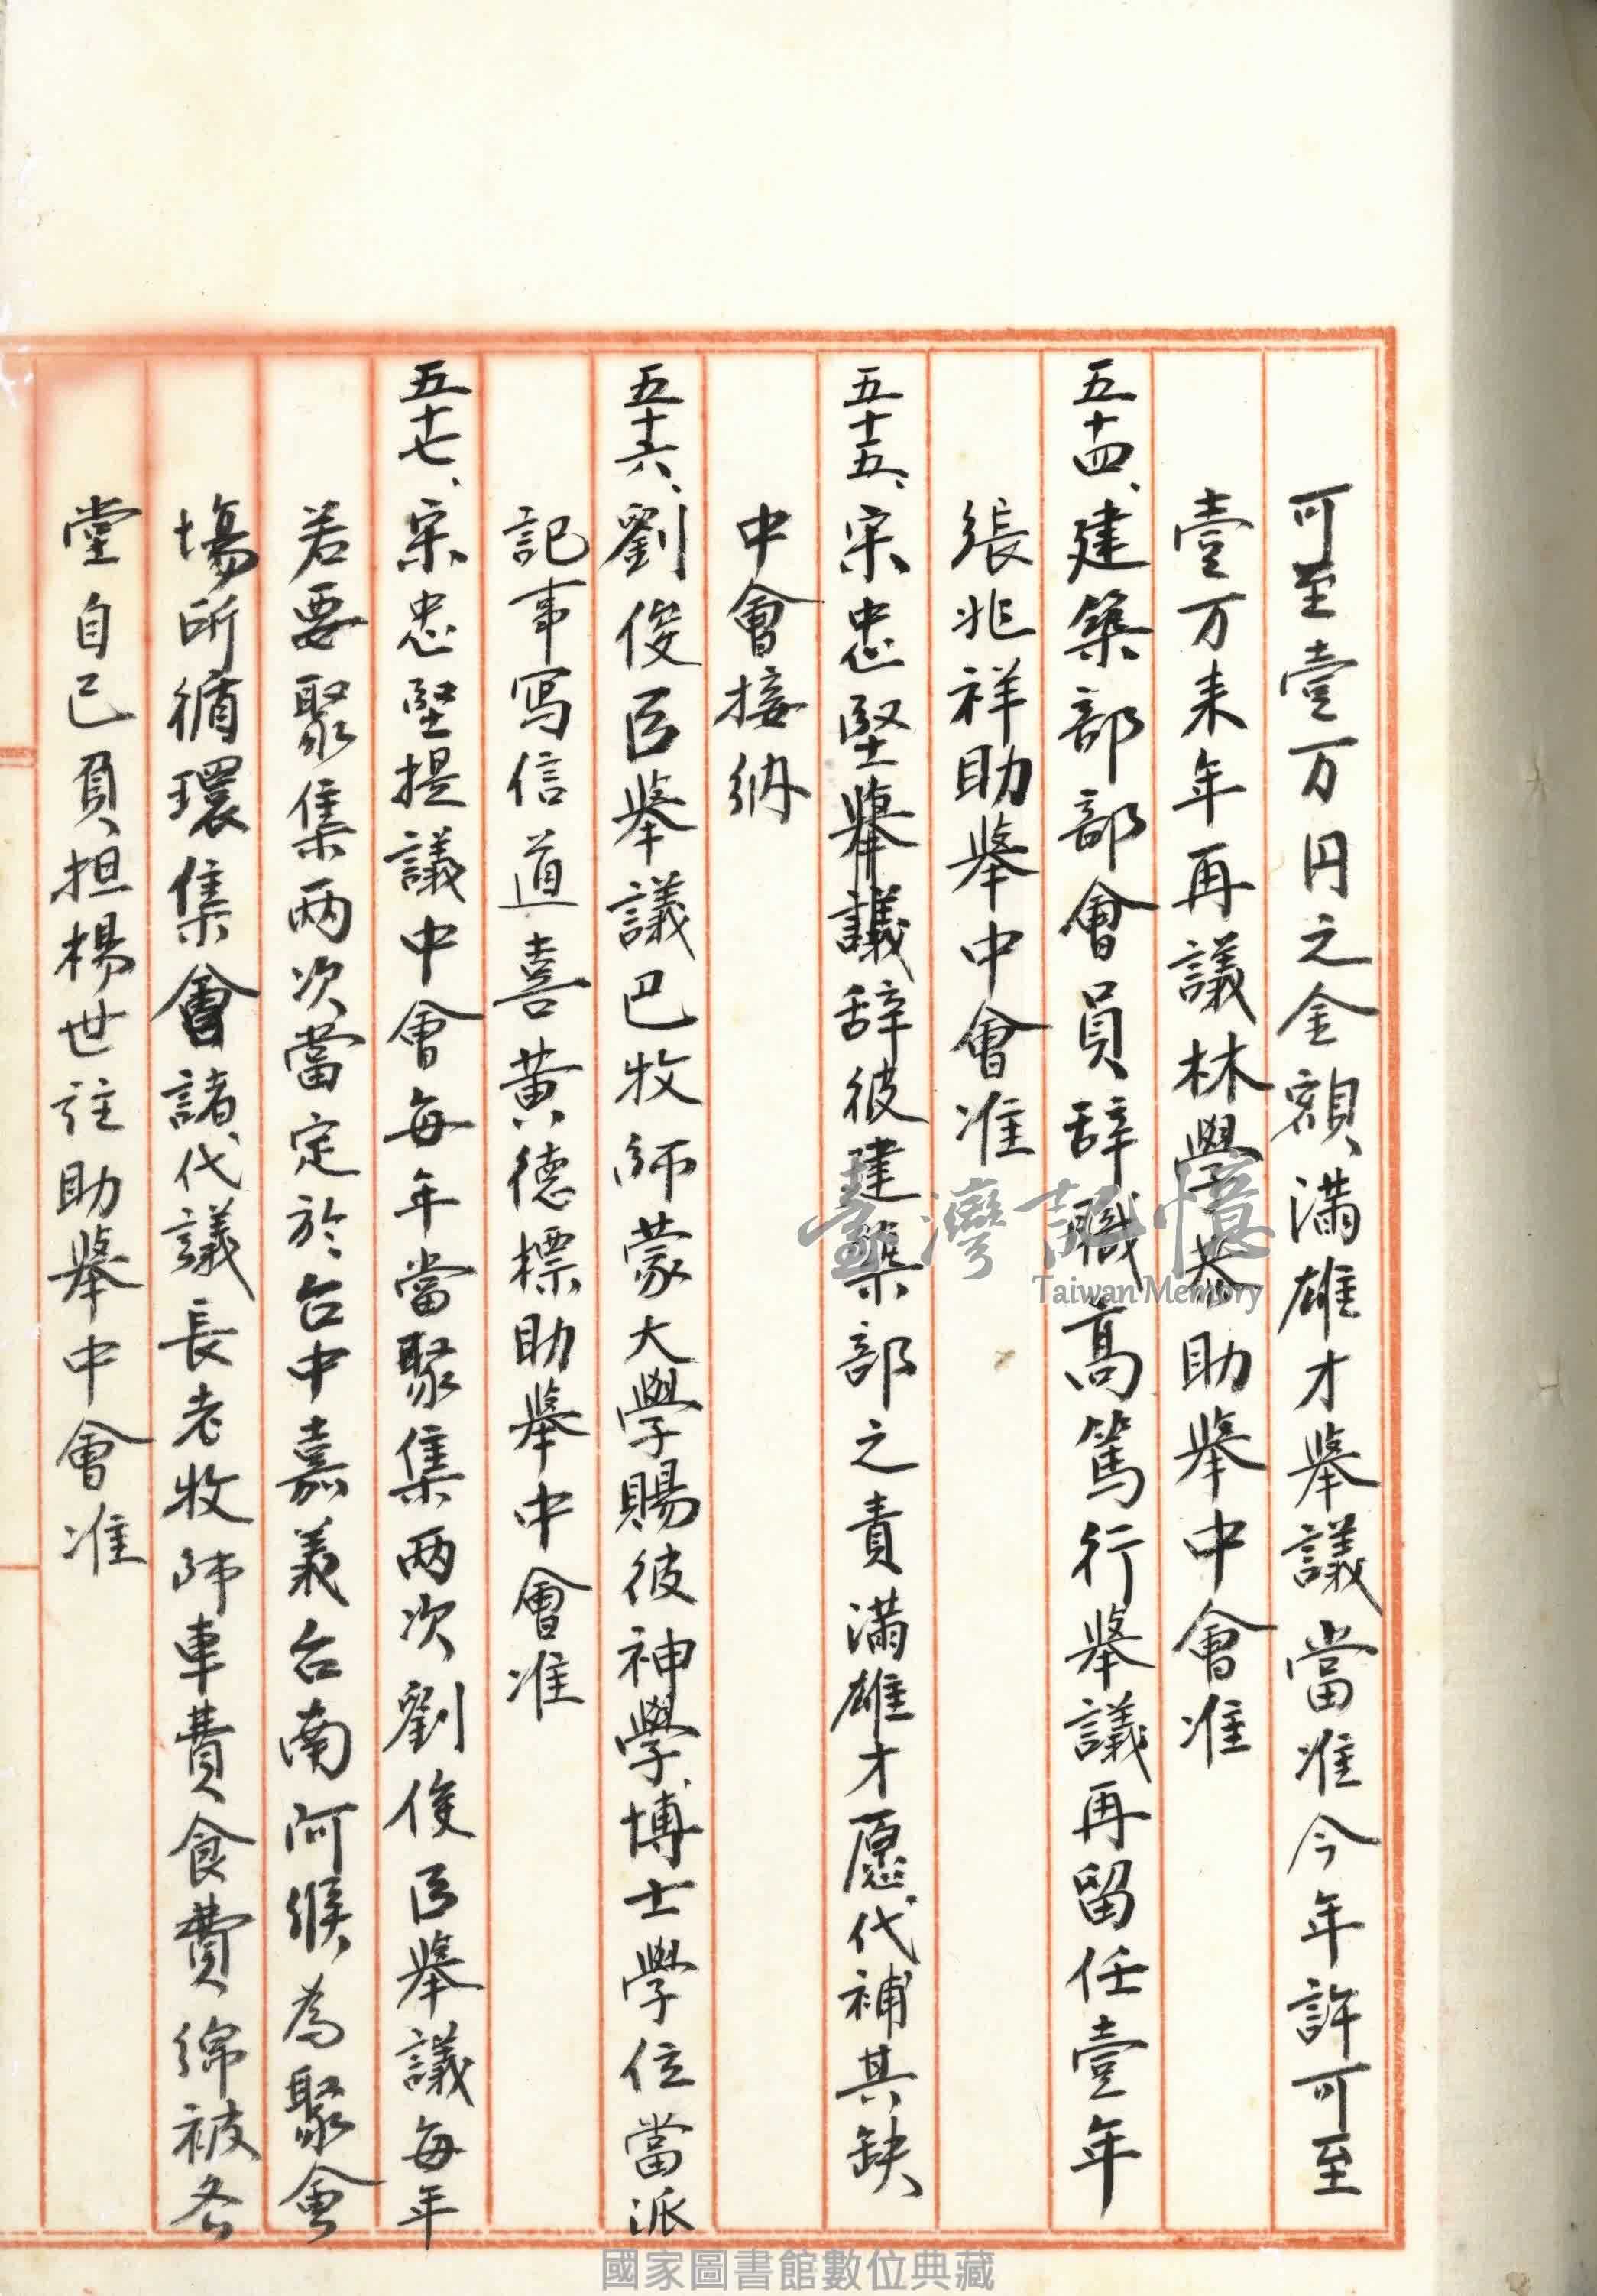 可至壹万円之金額滿雄才舉議當准今年許可至
壹万来年再議林學恭助舉中會准
五十四、建築部部會員辞職高篤行舉議再留任壹年
張兆祥助舉中會准
五十五、宋忠堅舉議辞彼建築部之責滿雄才愿代補其缺
中會接納
五十六、劉俊臣舉議巴牧師蒙大學賜彼神學博士學位當派
記事寫信道喜黃德標助舉中會准
五十七、宋忠堅提議中會每年當聚集兩次劉俊臣舉議每年
若要聚集兩次當定於台中嘉義台南阿緱為聚會
場所循環集會諸代議長老牧師車費食費綿被各
堂自己負担楊世註助舉中會准
臺灣記憶
Taiwan Memory
國家圖書館數位典藏